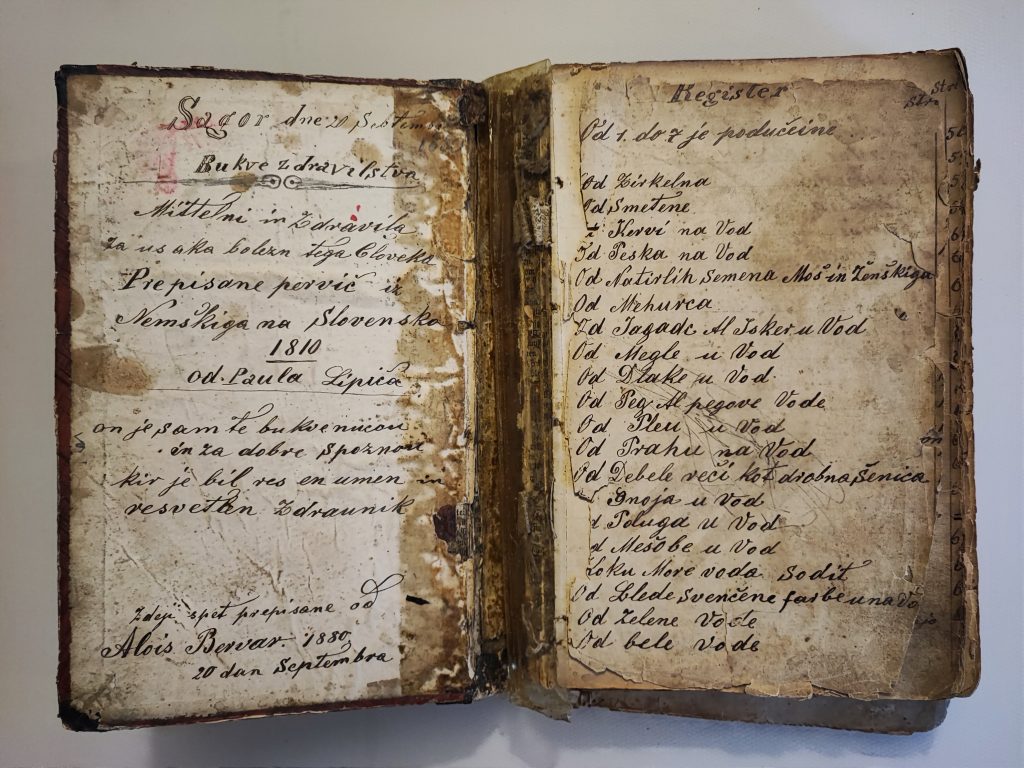 Sagor dne 20 Septemb
Bukve zdravilstva
Mittelni in Zdravila
za usaka bolezn tega Človeka
Prepisane pervič iz
Nemškiga na Slovenska
1810
od. Paula Lipiča
on je sam te bukve nucou
in za dobre spoznou
kir je bil res en umen in
resvetlen Zdraunik
Zdej spet prepisane od
Alois Bervar. 1880
20 dan Septembra
Register
Str
Str
Od 1. do 7 je podučeine
Od Zirkelna
Od Smetene
Kervi na Vod
Od Peska na Vod
Od Natirlih Semena Moš in Ženškiga
Od Mehurca
Od Jagadc Al Isker u Vod
Od Megle u Vod
Od Dlake u Vod
Od Peg Al pegove Vode
Od Pleu u Vod
Od Prahu na Vod
Od Debele reči kot drobna Šenica
Gnoja u Vod
Pouga u Vod
Mešobe u Vod
koku More voda Sodit
Od Blede Svenčene farbe u na Vo
Od Zelene Vode
Od bele Vode